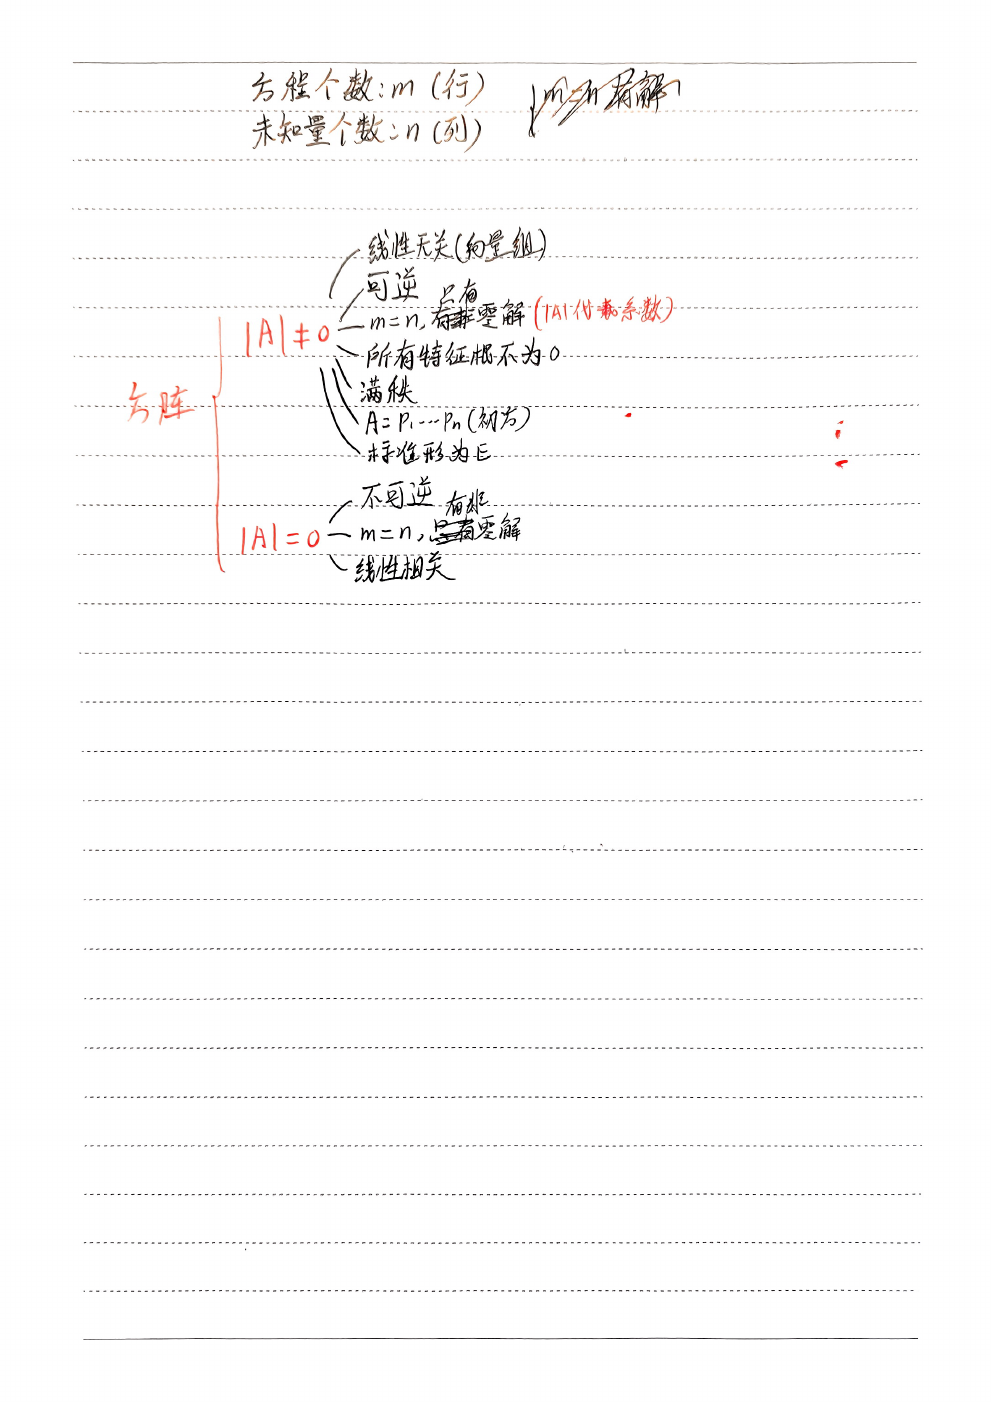 方程个数:m(行)
未知量个数:n(列)
线性无关(向量组)
可逆
m=n,只有零解(|A|代表系数)
|A|≠0
所有特征根不为0
满秩
方阵
A=P₁…Pn(初方)
标准形为E
不可逆
m=n,有非零解
|A|=0
线性相关